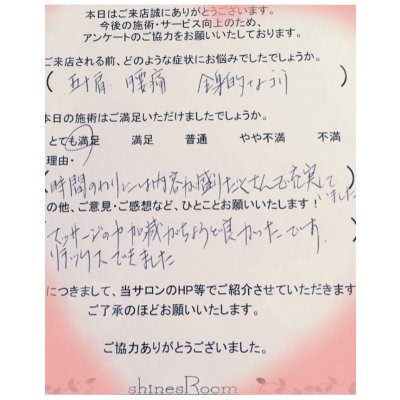 本日はご来店誠にありがとうございます。
今後の施術・サービス向上のため、
アンケートのご協力をお願いいたしております。
ご来店される前、どのような症状にお悩みでしたでしょうか。
(五十肩、腰痛 全身的な
本日の施術はご満足いただけましたでしょうか。
とても満足 満足 普通 やや不満 不満
理由・
(時間のわりには内容が盛りたくさんで充実して
いました
の他、ご意見・ご感想など、ひとことお願いします!
マッサージの力加減がちょうど良かったです。
リラックスできました
につきまして、当サロンのHP等でご紹介させていただきます
ご了承のほどお願いいたします。
ご協力ありがとうございました。
shinesRoom